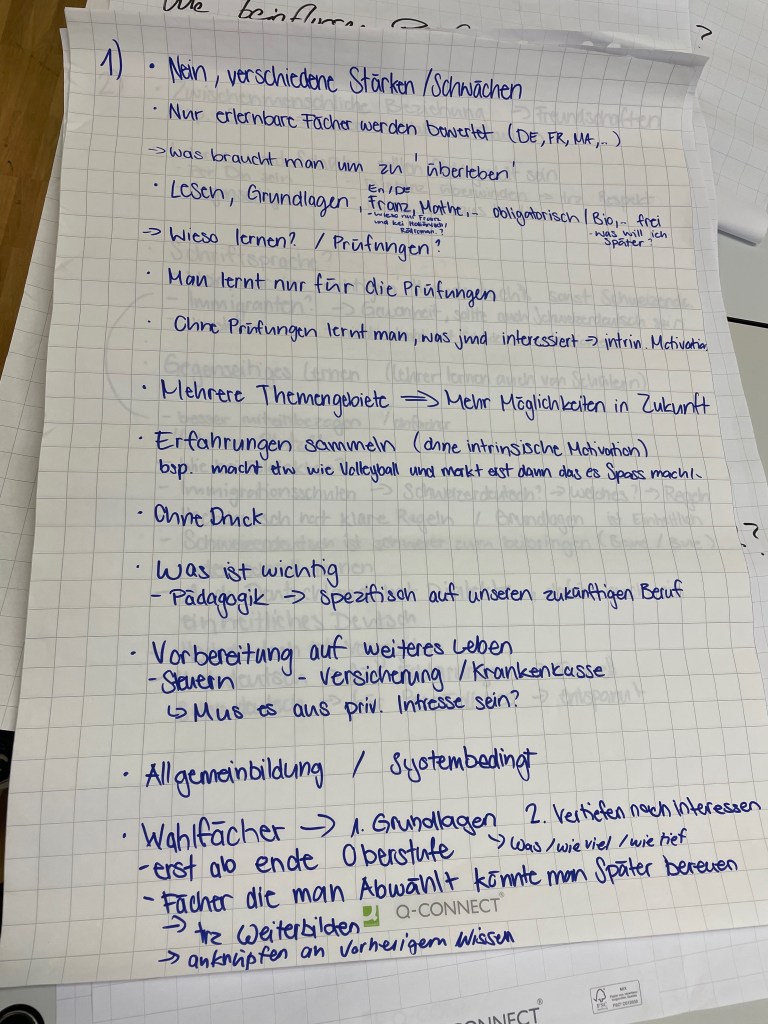 Wie beinflussen
?
1) • Nein, verschiedene Stärken / Schwächen
• Nur erlernbare Fächer werden bewertet (DE, FR, MA,..)
→ was braucht man um zu 'überleben'
En/DE
• Lesen, Grundlagen, Franz, Mathe,.. obligatorisch / Bio,.. frei
- wieso nur Franz und bei Italienisch/ Rätroman.?
- was will ich später?
→ Wieso lernen? / Prüfungen?
• Man lernt nur für die Prüfungen
• Ohne Prüfungen lernt man, was jmd interessiert → intrin. Motivation
• Mehrere Themengebiete ⇒ Mehr Möglichkeiten in Zukunft
• Erfahrungen sammeln (ohne intrinsische Motivation)
bsp. macht etw wie Volleyball und merkt erst dann das es Spass macht.
• Ohne Druck
?
• Was ist wichtig
- Pädagogik → spezifisch auf unseren zukünftigen Beruf
• Vorbereitung auf weiteres Leben
- Steuern - Versicherung / Krankenkasse
↳ Mus es aus priv. Intresse sein?
• Allgemeinbildung / Systembedingt
• Wahlfächer → 1. Grundlagen 2. Vertiefen nach Interessen
- erst ab ende Oberstufe ↳ Was / wie viel / wie tief
- Fächer die man Abwählt könnte man Später bereuen
→ trz Weiterbilden
Q-CONNECT®
→ anknüpfen an vorherigem Wissen
CONNECT®
FSC